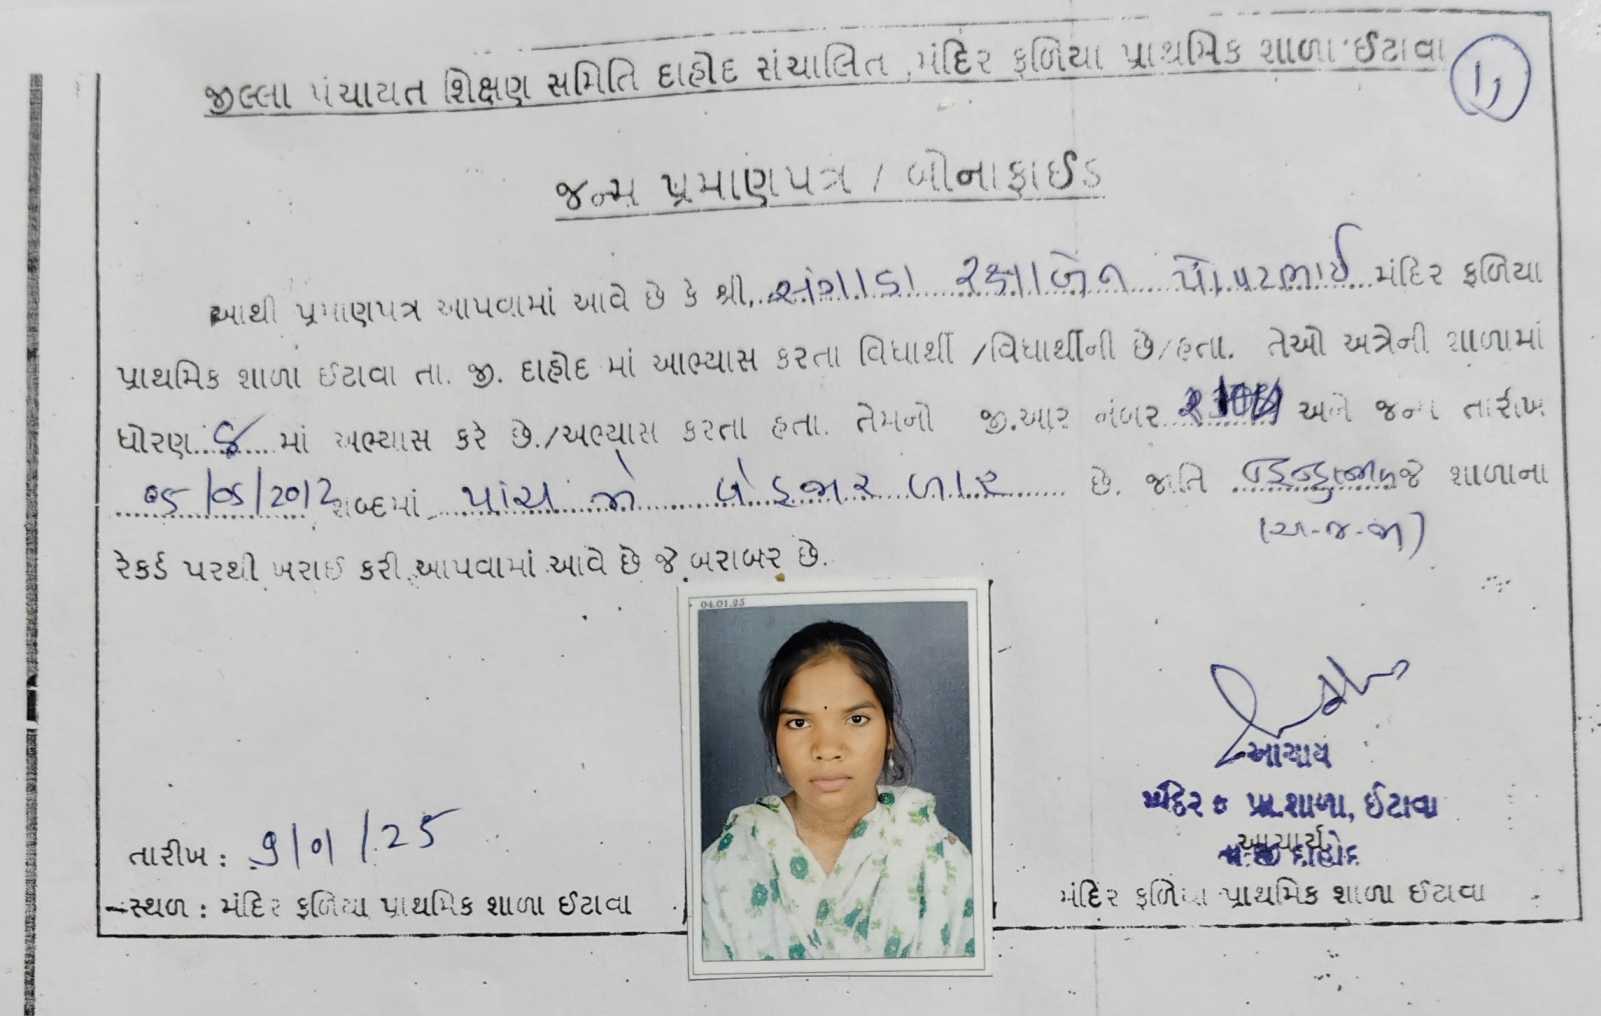 જીલ્લા પંચાયત શિક્ષણ સમિતિ દાહોદ સંચાલિત મંદિર ફળિયા પ્રાથમિક શાળા ઈટાવા
જન્મ પ્રમાણપત્ર / બોનાફાઈડ
આથી પ્રમાણપત્ર આપવામાં આવે છે કે શ્રી, સંગાડા રક્ષાબેન પોપટભાઈ મંદિર ફળિયા
પ્રાથમિક શાળા ઈટાવા તા. જી. દાહોદ માં આભ્યાસ કરતા વિધાર્થી /વિધાર્થીની છે/હતા. તેઓ અત્રેની શાળામાં
ધોરણ માં અભ્યાસ કરે છે./અભ્યાસ કરતા હતા. તેમનો જી.આર નંબર અને જન્મ તારીખ
05/05/2012 શબ્દમાં પાંચ મે બે હજાર બાર છે. જાતિ જે શાળાના
(અ-જ-જા)
રેકર્ડ પરથી ખરાઈ કરી આપવામાં આવે છે જે બરાબર છે.
04.01.25
આચાર્ય
મંદિર ફ પ્રા.શાળા, ઈટાવા
આચાર્ય
દાહોદ
તારીખ : 9/01/25
સ્થળ : મંદિર ફળિયા પ્રાથમિક શાળા ઈટાવા
મંદિર ફળિયા પ્રાથમિક શાળા ઈટાવા